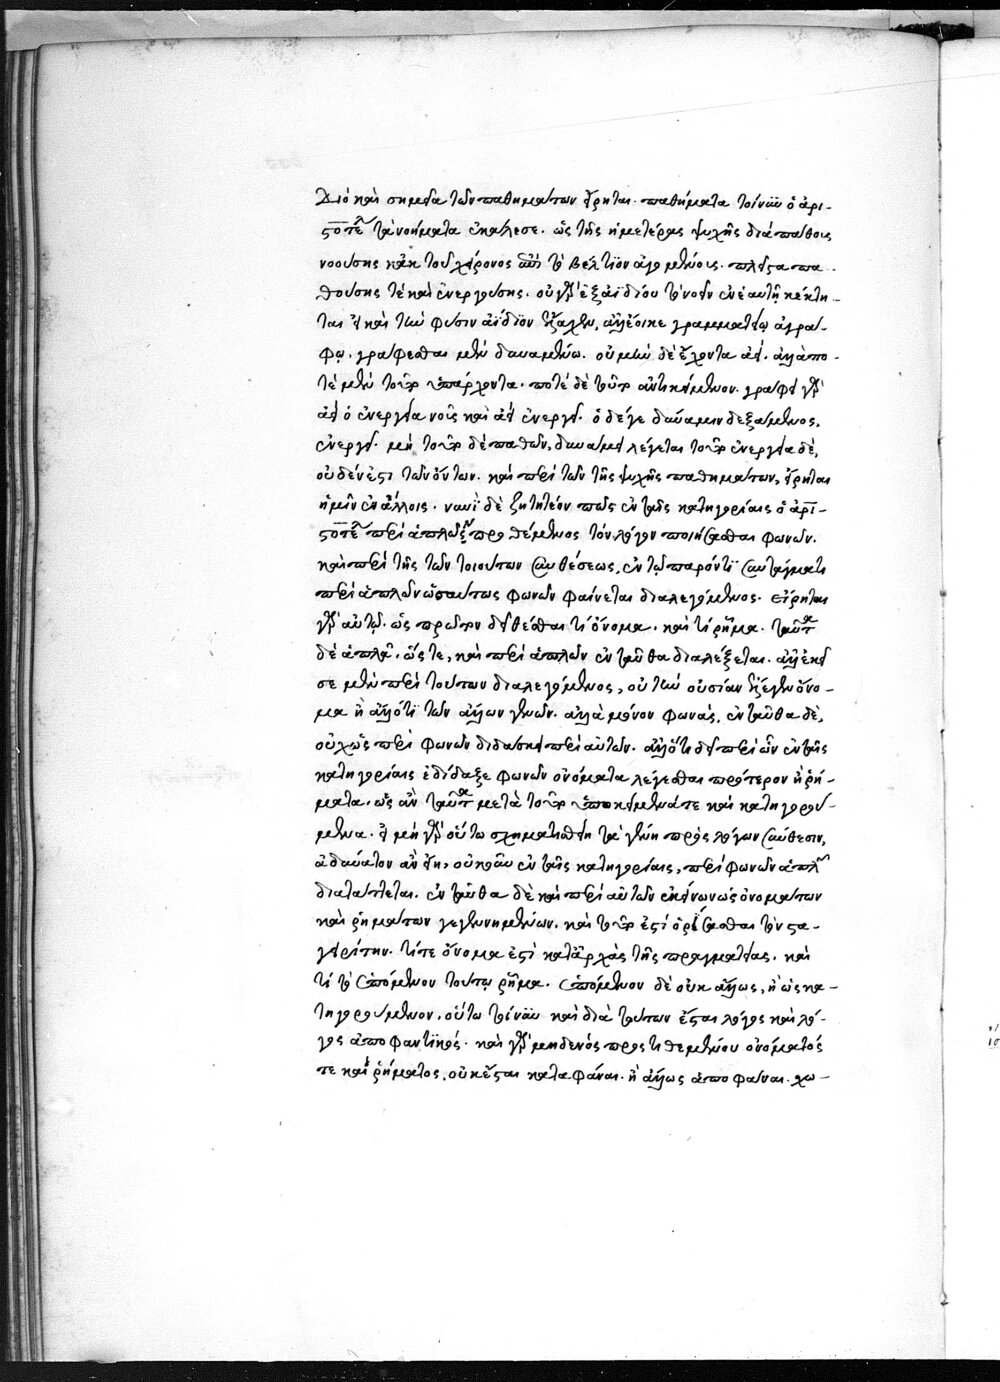 Διὸ καὶ σημεῖα τῶν παθημάτων εἴρηται. παθήματα τοίνυν ὁ ἀρι-
στοτέλης τὰ νοήματα ἐκάλεσε. ὡς τῆς ἡμετέρας ψυχῆς διὰ πάθους
νοούσης κἀκ τοῦ χείρονος ἐπὶ τὸ βέλτιον ἀγομένης.
θούσης τὲ καὶ ἐνεργούσης. οὐ γὰρ ἐξ ἀϊδίου τὸ νοεῖν ἐν ἑαυτῇ κέκτη-
ται εἰ καὶ τὴν φύσιν ἀΐδιον ἀλλ' ἔοικε γραμματείῳ ἀγρά-
φῳ. γράφεσθαι μὲν δυναμένῳ. οὐ μὴν δὲ ἔχοντα ἀεί. ἀλλὰ πο-
τὲ μὲν τοῦθ' ὑπάρχοντα. ποτὲ δὲ τοῦθ' ἀντικείμενον. γράφει γὰρ
ἀεὶ ὁ ἐνεργείᾳ νοῦς καὶ ἀεὶ ἐνεργεῖ. ὁ δέ γε δύναμιν δεξάμενος,
ἐνεργεῖ. μὴ τοῦθ' δὲ παθὼν, δυνάμει λέγεται τοῦθ' ἐνεργείᾳ δὲ,
οὐδέν ἐστι τῶν ὄντων. καὶ περὶ τῶν τῆς ψυχῆς παθημάτων, εἴρηται
ἡμῖν ἐν ἄλλοις. νυνὶ δὲ ζητητέον πῶς ἐν ταῖς κατηγορίαις ὁ ἀρι-
στοτέλης περὶ ἁπλῶν προθέμενος τὸν λόγον ποιήσασθαι φωνῶν.
καὶ περὶ τῆς τῶν τοιούτων συνθέσεως, ἐν τῷ παρόντι συντάγματι
περὶ ἁπλῶν ὡσαύτως φωνῶν φαίνεται διαλεγόμενος. εἴρηται
γὰρ αὐτῷ. ὡς πρῶτον δεῖ θέσθαι τί ὄνομα. καὶ τί ῥῆμα. ταῦτα
δὲ ἁπλᾶ. ὥστε, καὶ περὶ ἁπλῶν ἐνταῦθα διαλέξεται. ἀλλ' ἐκεῖ-
σε μὲν περὶ τούτων διαλεγόμενος, οὐ τὴν οὐσίαν ἔλεγεν ὄνο-
μα ἢ ἄλλό τι τῶν ἄλλων γενῶν. ἀλλὰ μόνον φωνάς. ἐνταῦθα δὲ,
οὐχ ὡς περὶ φωνῶν διδάσκει περὶ αὐτῶν. ἀλλ' ὅτι δεῖ περὶ ὧν ἐν ταῖς
κατηγορίαις ἐδίδαξε φωνῶν ὀνόματα λέγεσθαι πρότερον ἢ ῥή-
ματα. ὡς ἂν ταῦτα μετὰ τοῦθ' ὑποκείμενά τε καὶ κατηγορού-
μενα. εἰ μὴ γὰρ οὕτω σχηματισθείη τὰ γένη πρὸς λόγων σύνθεσιν,
ἀδύνατον ἂν εἴη, οὐκοῦν ἐν ταῖς κατηγορίαις, περὶ φωνῶν ἁπλῶν
διατάττεται. ἐνταῦθα δὲ καὶ περὶ αὐτῶν ἐκείνων ὡς ὀνομάτων
καὶ ῥημάτων γεγενημένων. καὶ τοῦθ' ἐστὶ ὁρίσασθαι τὸν στα-
γειρίτην. τί τε ὄνομα ἐστὶ κατ' ἀρχὰς τῆς πραγματείας. καὶ
τί τὸ ἑπόμενον τούτῳ ῥῆμα. ἑπόμενον δὲ οὐκ ἄλλως, ἢ ὡς κα-
τηγορούμενον. οὕτω τοίνυν καὶ διὰ τούτων ἔσται λόγος καὶ λό-
γος ἀποφαντικός. καὶ γὰρ μηδενὸς προστιθεμένου ὀνόματός
τε καὶ ῥήματος, οὐκ ἔσται καταφάναι. ἢ ἄλλως ἀποφάναι. χω-